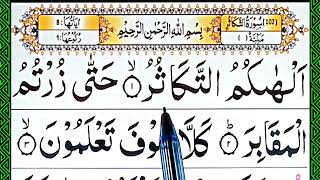 (102) سُوْرَةُ التَّكَاثُرِ مَكِّيَّةٌ بِسْمِ اللّٰهِ الرَّحْمٰنِ الرَّحِيْمِ اٰيَاتُهَا: 8 رُكُوْعُهَا: 1
اَلْهٰىكُمُ التَّكَاثُرُ ۙ﴿۱﴾ حَتّٰى زُرْتُمُ
الْمَقَابِرَ ؕ﴿۲﴾ كَلَّا سَوْفَ تَعْلَمُوْنَ ۙ﴿۳﴾